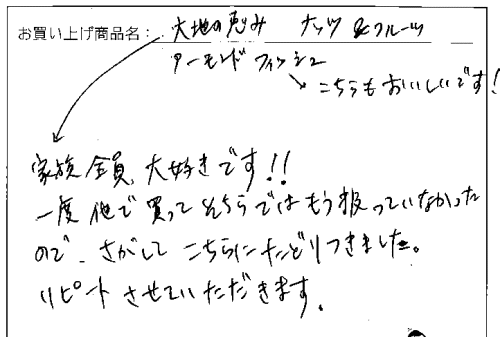 お買い上げ商品名： 大地の恵み ナッツ&フルーツ
アーモンドフィッシュ
こちらもおいしいです！
家族全員大好きです！！
一度他で買ってそちらではもう扱っていなかった
ので、さがしてこちらにたどりつきました。
リピートさせていただきます。